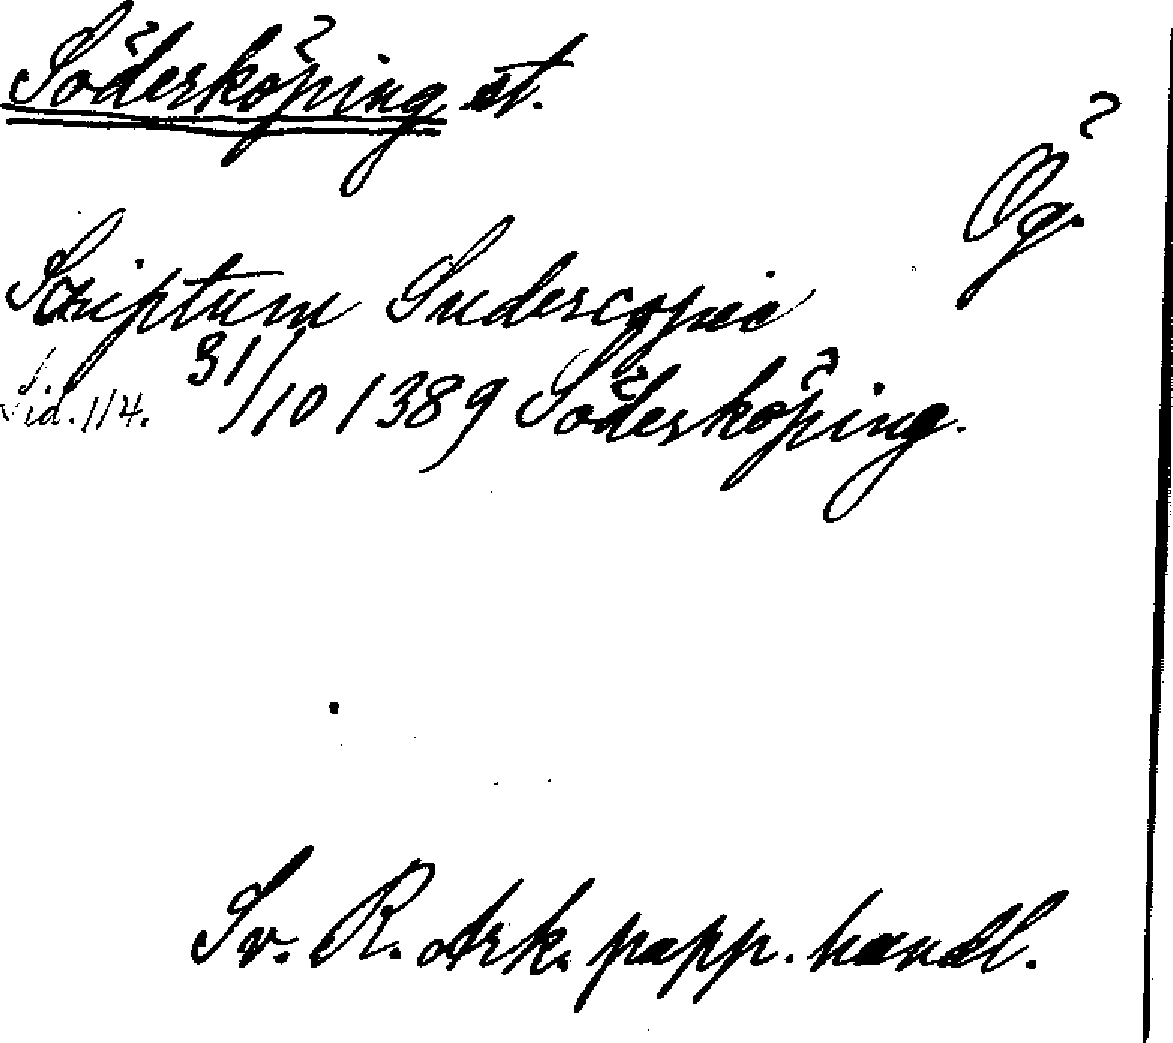 Söderköping st.
Ög.
Scriptum Sudercopie
Sid. 114. 31/10 1389 Söderköping.
Sv. R. Ark. papp. handl.